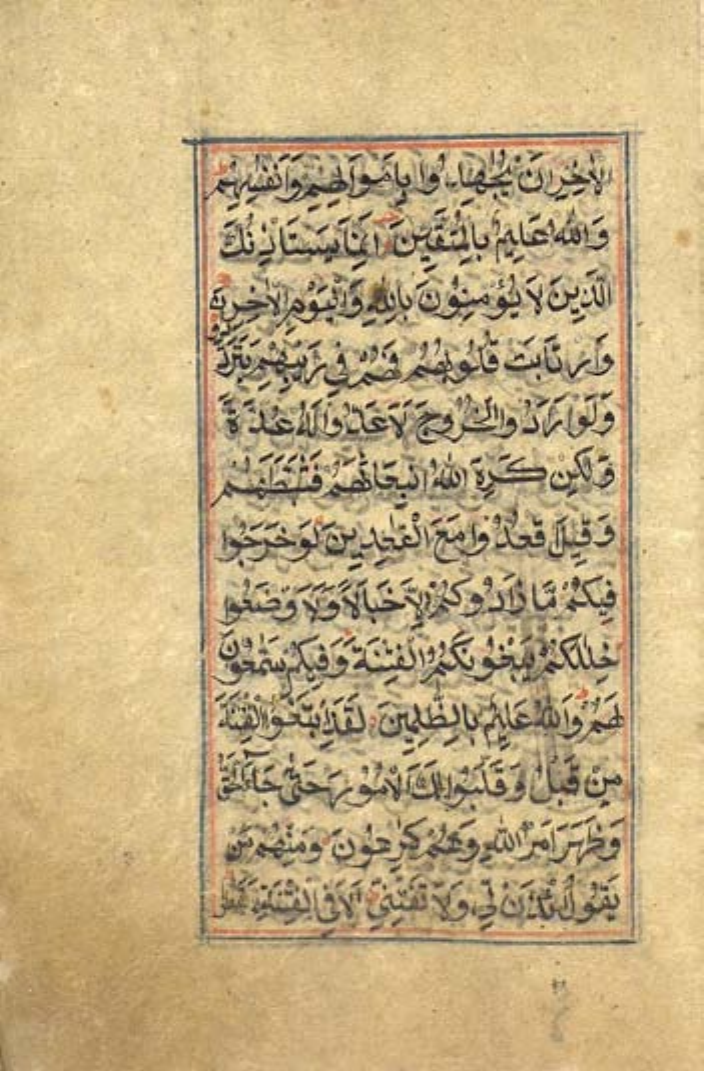 الْاٰخِرِ اَنْ يُّجٰهِدُوْا بِاَمْوَالِهِمْ وَاَنْفُسِهِمْ ط
وَاللّٰهُ عَلِيْمٌ بِالْمُتَّقِيْنَ اِنَّمَا يَسْتَاْذِنُكَ
الَّذِيْنَ لَا يُؤْمِنُوْنَ بِاللّٰهِ وَالْيَوْمِ الْاٰخِرِ
وَارْتَابَتْ قُلُوْبُهُمْ فَهُمْ فِيْ رَيْبِهِمْ يَتَرَدَّدُوْنَ
وَلَوْ اَرَادُوا الْخُرُوْجَ لَاَعَدُّوْا لَهٗ عُدَّةً
وَّلٰكِنْ كَرِهَ اللّٰهُ انْبِعَاثَهُمْ فَثَبَّطَهُمْ
وَقِيْلَ اقْعُدُوْا مَعَ الْقٰعِدِيْنَ لَوْ خَرَجُوْا
فِيْكُمْ مَّا زَادُوْكُمْ اِلَّا خَبَالًا وَّلَاَ۟اوْضَعُوْا
خِلٰلَكُمْ يَبْغُوْنَكُمُ الْفِتْنَةَ وَفِيْكُمْ سَمّٰعُوْنَ
لَهُمْ ط وَاللّٰهُ عَلِيْمٌ بِالظّٰلِمِيْنَ لَقَدِ ابْتَغَوُا الْفِتْنَةَ
مِنْ قَبْلُ وَقَلَّبُوْا لَكَ الْاُمُوْرَ حَتّٰى جَآءَ الْحَقُّ
وَظَهَرَ اَمْرُ اللّٰهِ وَهُمْ كٰرِهُوْنَ وَمِنْهُمْ مَّنْ
يَّقُوْلُ ائْذَنْ لِّيْ وَلَا تَفْتِنِّيْ اَلَا فِى الْفِتْنَةِ سَقَطُوْا